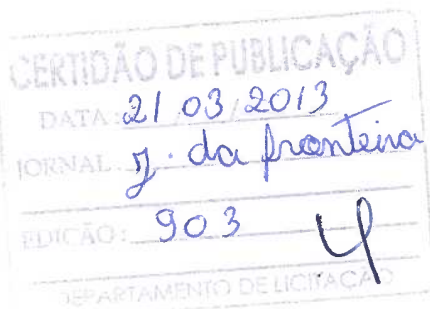 CERTIDÃO DE PUBLICAÇÃO
DATA: 21/03/2013
JORNAL: J. da fronteira
EDIÇÃO: 903
DEPARTAMENTO DE LICITAÇÃO